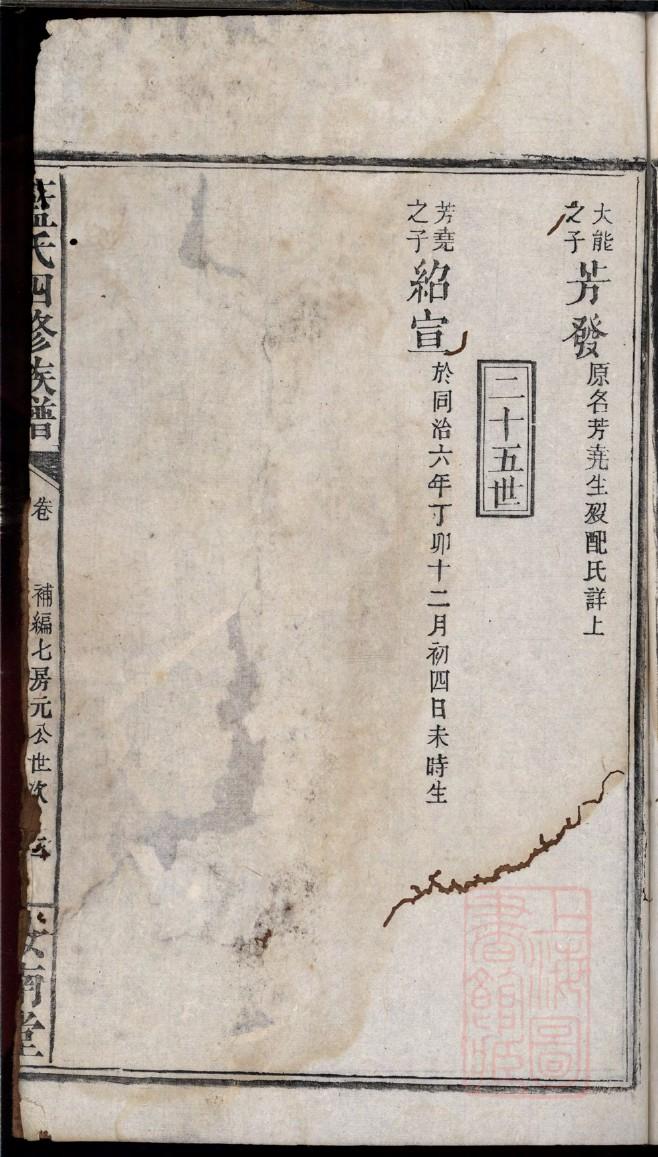 大能
之子
芳發
原名芳堯生歿配氏詳上
二十五世
芳堯
之子
紹宣
於同治六年丁卯十二月初四日未時生
藍氏四修族譜
卷
補編七房元公世次
汝南堂
上海圖
書館藏